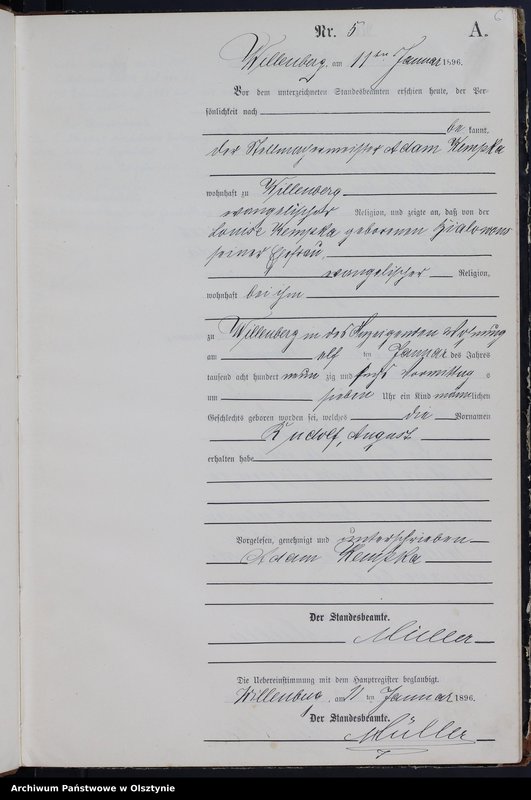 6
Nr. 5 A.
Willenberg, am 11ten Januar 1896.
Vor dem unterzeichneten Standesbeamten erschien heute, der Per-
sönlichkeit nach
be kannt,
der Stellmachermeister Adam Kempka
wohnhaft zu Willenberg
evangelischer Religion, und zeigte an, daß von der
Louise Kempka geborenen
seiner Ehefrau,
evangelischer Religion,
wohnhaft bei ihm
zu Willenberg in des Anzeigenden Wohnung
am elf ten Januar des Jahres
tausend acht hundert neun zig und sechs Vormittag s
um sieben Uhr ein Kind männlichen
Geschlechts geboren worden sei, welches die Vornamen
Rudolf, August
erhalten habe
Vorgelesen, genehmigt und unterschrieben
Adam Kempka
Der Standesbeamte.
Müller
Die Uebereinstimmung mit dem Hauptregister beglaubigt.
Willenberg, am 11 ten Januar 1896.
Der Standesbeamte.
Müller
Archiwum Państwowe w Olsztynie